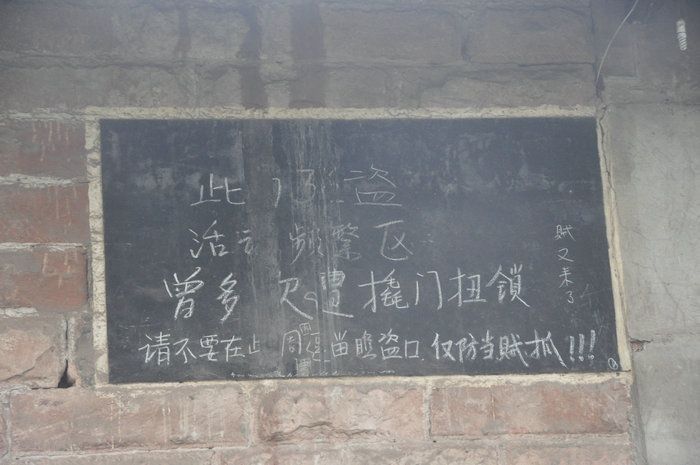 此乃盗
活动频繁区
曾多次遭撬门扭锁
请不要在此周 苗瞧盗口 仅防当贼抓!!!
贼又来了